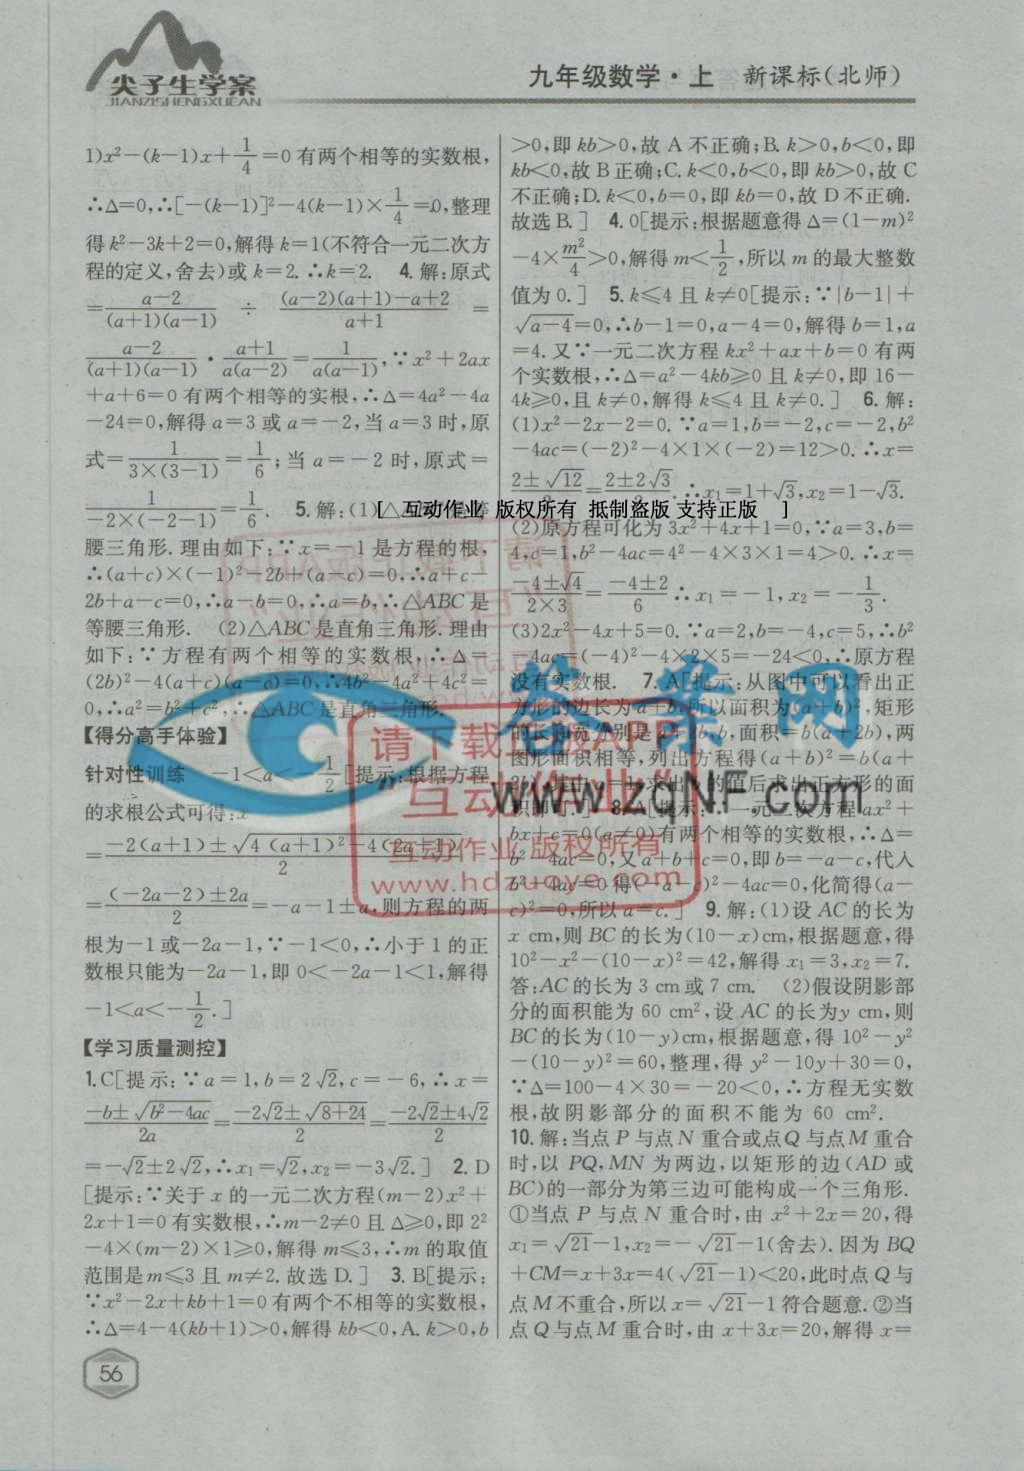 尖子生学案
JIANZISHENGXUEAN
九年级数学·上 新课标(北师)
1)x²-(k-1)x+1/4=0有两个相等的实数根,
∴Δ=0,∴[-(k-1)]²-4(k-1)×1/4=0,整理
得k²-3k+2=0,解得k=1(不符合一元二次方
程的定义,舍去)或k=2.∴k=2. 4.解:原式
=(a-2)/((a+1)(a-1)) ÷ ((a-2)(a+1)-a+2)/(a+1) =
(a-2)/((a+1)(a-1))·(a+1)/(a(a-2))=1/(a(a-1)),∵x²+2ax
+a+6=0有两个相等的实根,∴Δ=4a²-4a
-24=0,解得a=3或a=-2,当a=3时,原
式=1/(3×(3-1))=1/6;当a=-2时,原式=
1/(-2×(-2-1))=1/6. 5.解:(1)△ 等
腰三角形.理由如下:∵x=-1是方程的根,
∴(a+c)×(-1)²-2b+(a-c)=0,∴a+c-
2b+a-c=0,∴a-b=0,∴a=b,∴△ABC是
等腰三角形. (2)△ABC是直角三角形.理由
如下:∵方程有两个相等的实数根,∴Δ=
(2b)²-4(a+c)(a-c)=0,∴4b²-4a²+4c²=
0,∴a²=b²+c²,∴△ABC是直角三角形.
【得分高手体验】
针对性训练 -1<a<-1/2[提示:根据方程
的求根公式可得:x
=(-2(a+1)±√(4(a+1)²-4(2a+1)))/2
=((-2a-2)±2a)/2=-a-1±a,则方程的两
根为-1或-2a-1,∵-1<0,∴小于1的正
数根只能为-2a-1,即0<-2a-1<1,解得
-1<a<-1/2.]
【学习质量测控】
1.C[提示:∵a=1,b=2√2,c=-6,∴x=
(-b±√(b²-4ac))/2a=(-2√2±√(8+24))/2=(-2√2±4√2)/2
=-√2±2√2,∴x₁=√2,x₂=-3√2.] 2.D
[提示:∵关于x的一元二次方程(m-2)x²+
2x+1=0有实数根,∴m-2≠0且Δ≥0,即2²
-4×(m-2)×1≥0,解得m≤3,∴m的取值
范围是m≤3且m≠2.故选D.] 3.B[提示:
∵x²-2x+kb+1=0有两个不相等的实数根,
∴Δ=4-4(kb+1)>0,解得kb<0,A.k>0,b
>0,即kb>0,故A不正确;B.k>0,b<0,即
kb<0,故B正确;C.k<0,b<0,即kb>0,故C
不正确;D.k<0,b=0,即kb=0,故D不正确.
故选B.] 4.0[提示:根据题意得Δ=(1-m)²
-4×m²/4>0,解得m<1/2,所以m的最大整数
值为0.] 5.k≤4且k≠0[提示:∵|b-1|+
√(a-4)=0,∴b-1=0,a-4=0,解得b=1,a
=4.又∵一元二次方程kx²+ax+b=0有两
个实数根,∴Δ=a²-4kb≥0且k≠0,即16-
4k≥0,且k≠0,解得k≤4且k≠0.] 6.解:
(1)x²-2x-2=0.∵a=1,b=-2,c=-2,b²
-4ac=(-2)²-4×1×(-2)=12>0.∴x=
(2±√12)/2=(2±2√3)/2.∴x₁=1+√3,x₂=1-√3.
[ 互动作业 版权所有 抵制盗版 支持正版 ]
(2)原方程可化为3x²+4x+1=0,∵a=3,b=
4,c=1,b²-4ac=4²-4×3×1=4>0.∴x=
(-4±√4)/(2×3)=(-4±2)/6∴x₁=-1,x₂=-1/3.
(3)2x²-4x+5=0.∵a=2,b=-4,c=5,∴b²
-4ac=(-4)²-4×2×5=-24<0,∴原方程
没有实数根. 7.A[提示:从图中可以看出正
方形的边长为a+b,所以面积为(a+b)²,矩形
的长和宽分别是a+2b,b,面积=b(a+2b),两
图形面积相等,列出方程得(a+b)²=b(a+
2b),其中 求出 的值后求出正方形的面
积即可.] 8.A[提示: 一元二次方程ax²+
bx+c=0(a≠0)有两个相等的实数根,∴Δ=
b²-4ac=0,又a+b+c=0,即b=-a-c,代入
b²-4ac=0得(-a-c)²-4ac=0,化简得(a-
c)²=0,所以a=c.] 9.解:(1)设AC的长为
x cm,则BC的长为(10-x)cm,根据题意,得
10²-x²-(10-x)²=42,解得x₁=3,x₂=7.
答:AC的长为3 cm或7 cm. (2)假设阴影部
分的面积能为60 cm²,设AC的长为y cm,则
BC的长为(10-y)cm,根据题意,得10²-y²
-(10-y)²=60,整理,得y²-10y+30=0,
∵Δ=100-4×30=-20<0,∴方程无实数
根,故阴影部分的面积不能为60 cm².
10.解:当点P与点N重合或点Q与点M重合
时,以PQ,MN为两边,以矩形的边(AD或
BC)的一部分为第三边可能构成一个三角形.
①当点P与点N重合时,由x²+2x=20,得
x₁=√21-1,x₂=-√21-1(舍去).因为BQ
+CM=x+3x=4(√21-1)<20,此时点Q与
点M不重合,所以x=√21-1符合题意.②当
点Q与点M重合时,由x+3x=20,解得x=
答案网
www.zqNF.com
请下载正版APP
"互动作业"
互动作业 版权所有
www.hdzuoye.com
56